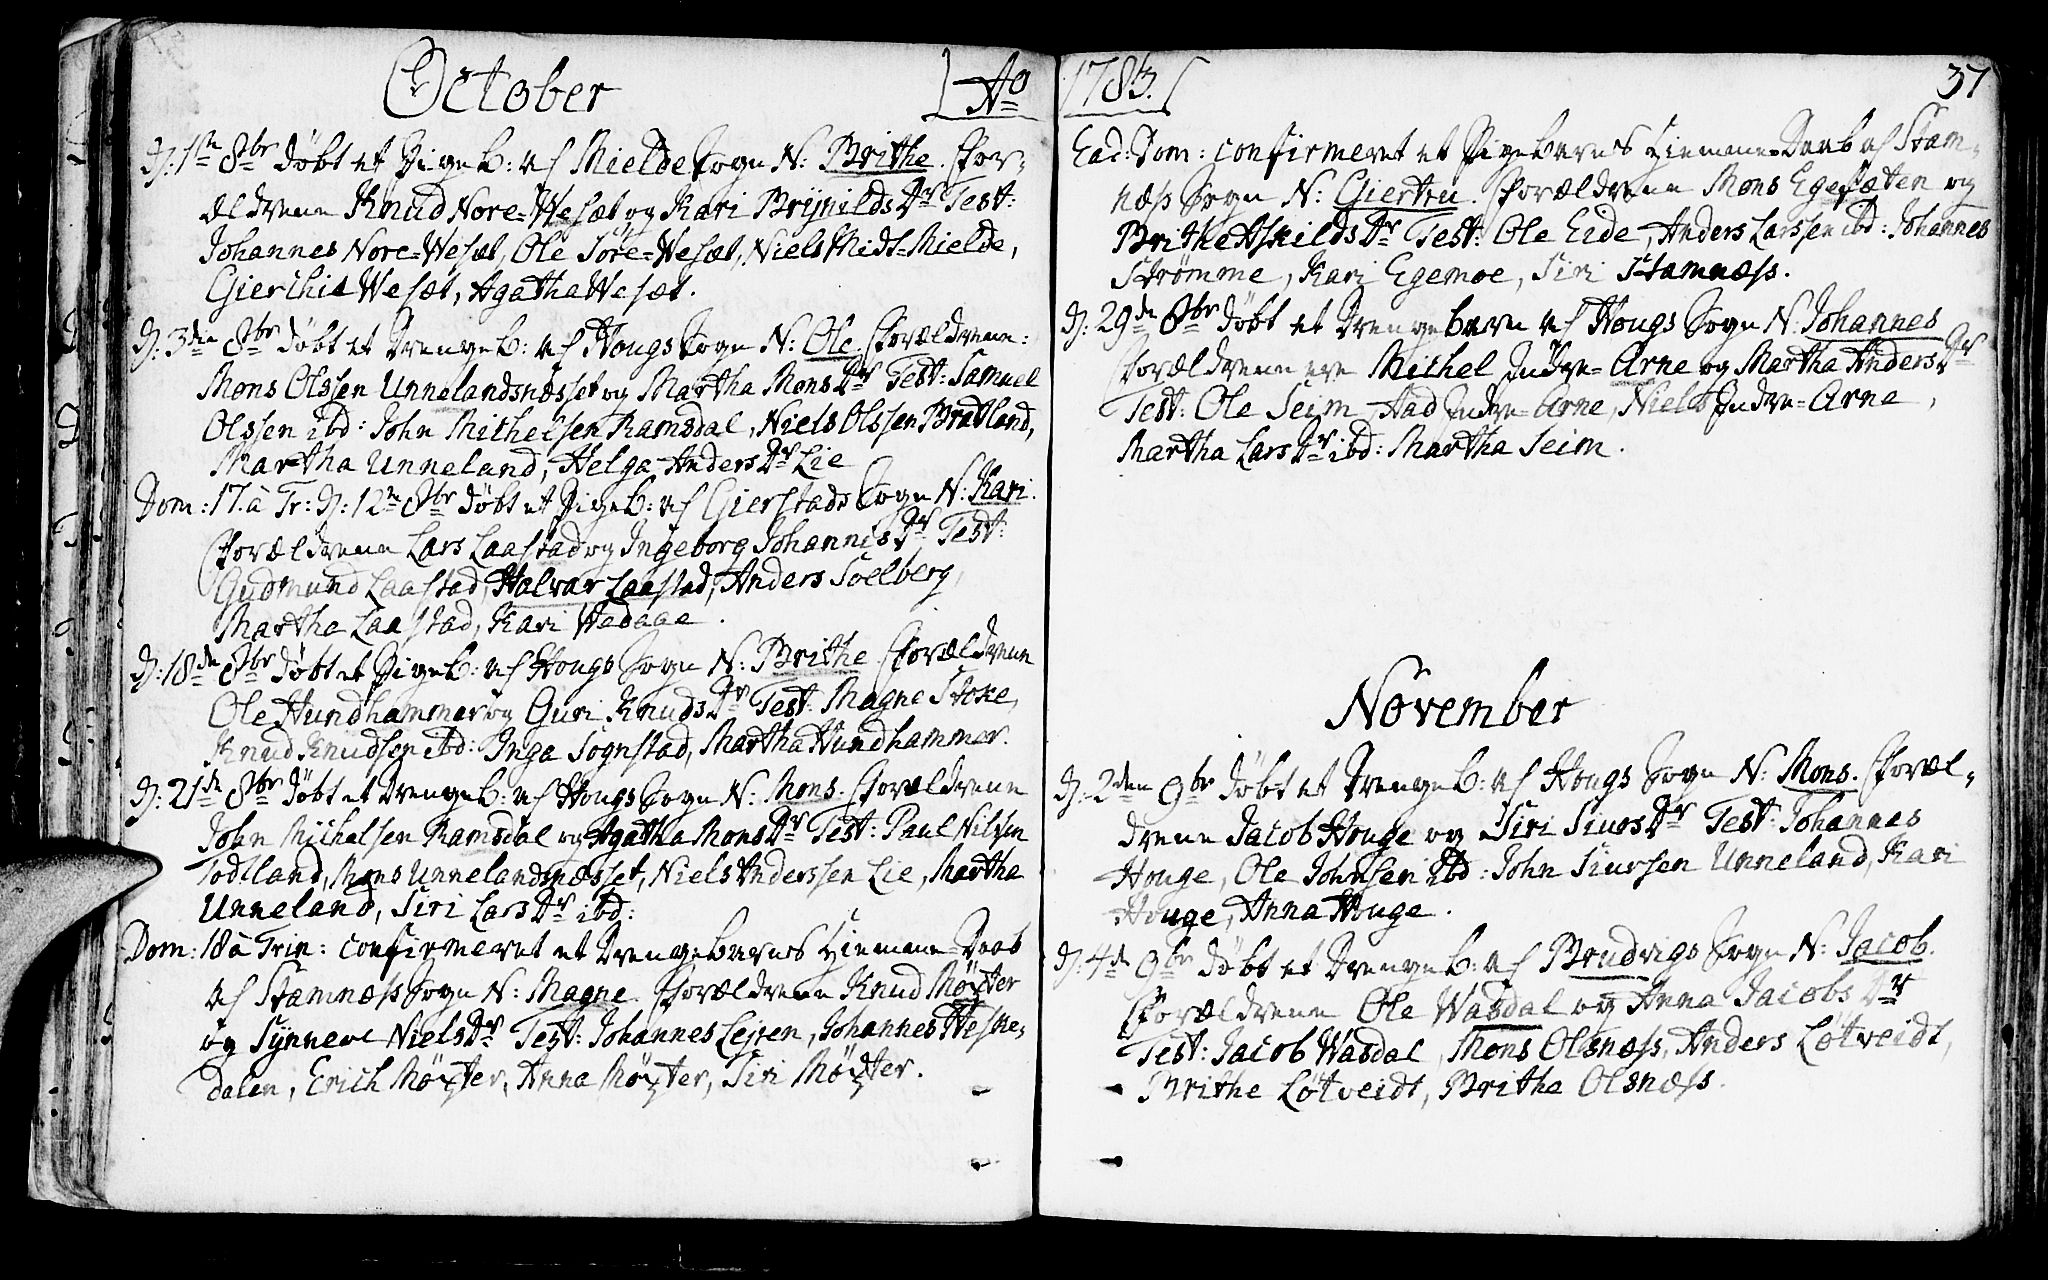 October
Ao
D: 1ste 8br døbt et Pigeb: af Mielde Sogn N: Brithe. For-
ældrene Knud Nore-Wesæt og Kari Brijnilds Dr Test:
Johannes Nore-Wesæt, Ole Søre-Wesæt, Niels Midt-Mielde,
Gierthie Wesæt, Agatha Wesæt.
D: 3die 8br døbt et Drengeb: af Hougs Sogn N: Ole. Forældrene:
Mons Olssen Unnelandsnæsset og Martha Mons Dr Test: Samuel
Olssen ibd: John Mithelsen Ramsdal, Niels Olssen Bratland,
Martha Unneland, Helga Anders Dr Lie
Dom: 17. à Tr: D: 12te 8br døbt et Pigeb: af Gierstads Sogn N: Kari.
Forældrene Lars Laastad og Ingeborg Johannis Dr Test:
Gudmund Laastad, Halvar Laastad, Anders Solberg,
Martha Laastad, Kari Wedaae.
D: 18de 8br døbt et Pigeb: af Hougs Sogn N: Brithe Forældrene
Ole Hundhammer og Guri Knuds Dr Test: Magne Stoke,
Knud Knudsen ibd: Inga Sognstad, Martha Hundhammer.
D: 21de 8br døbt et Drengeb: af Hougs Sogn N: Mons. Forældrene
John Mithelsen Ramsdal og Agatha Mons Dr Test: Paul Nilsen
Todland, Mons Unnelandsnæsset, Niels Anderssen Lie, Martha
Unneland, Siri Lars Dr ibd:
Dom: 18 à Trin: confirmeret et Drengebarns Hiemme-Daab
af Stamnæss Sogn N: Magne. Forældrene Knud Møxter
og Synneve Niels Dr Test: Johannes Lejren, Johannes Heske-
dalen, Erich Møxter, Anna Møxter, Siri Møxter.
1783.
37
Ead: Dom: confirmeret et Pigebarns Hiemme-Daab af Stam-
næss Sogn N: Giertru. Forældrene Mons Egesæten og
Brithe Askilds Dr Test: Ole Eide, Anders Larssen ibd: Johannes
Strømme, Kari Egemoe, Siri Stamnæss.
D: 29de 8br døbt et Drengebarn af Hougs Sogn N: Johannes
Forældrene ere Mithel Indre-Arne og Martha Anders Dr
Test: Ole Seim, Aad Indre-Arne, Niels Indre-Arne,
Martha Lars Dr ibd: Martha Seim.
November
D: 2den 9br døbt et Drengeb: af Hougs Sogn N: Mons. Foræl-
drene Jacob Houge og Siri Siurs Dr Test: Johannes
Houge, Ole Johnsen ibd: John Siursen Unneland, Kari
Houge, Anna Houge.
D: 4de 9br døbt et Drengeb: af Brudvigs Sogn N: Jacob.
Forældrene Ole Wasdal og Anna Jacobs Dr
Test: Jacob Wasdal, Mons Olsnæss, Anders Løtveidt,
Brithe Løtveidt, Brithe Olsnæss.